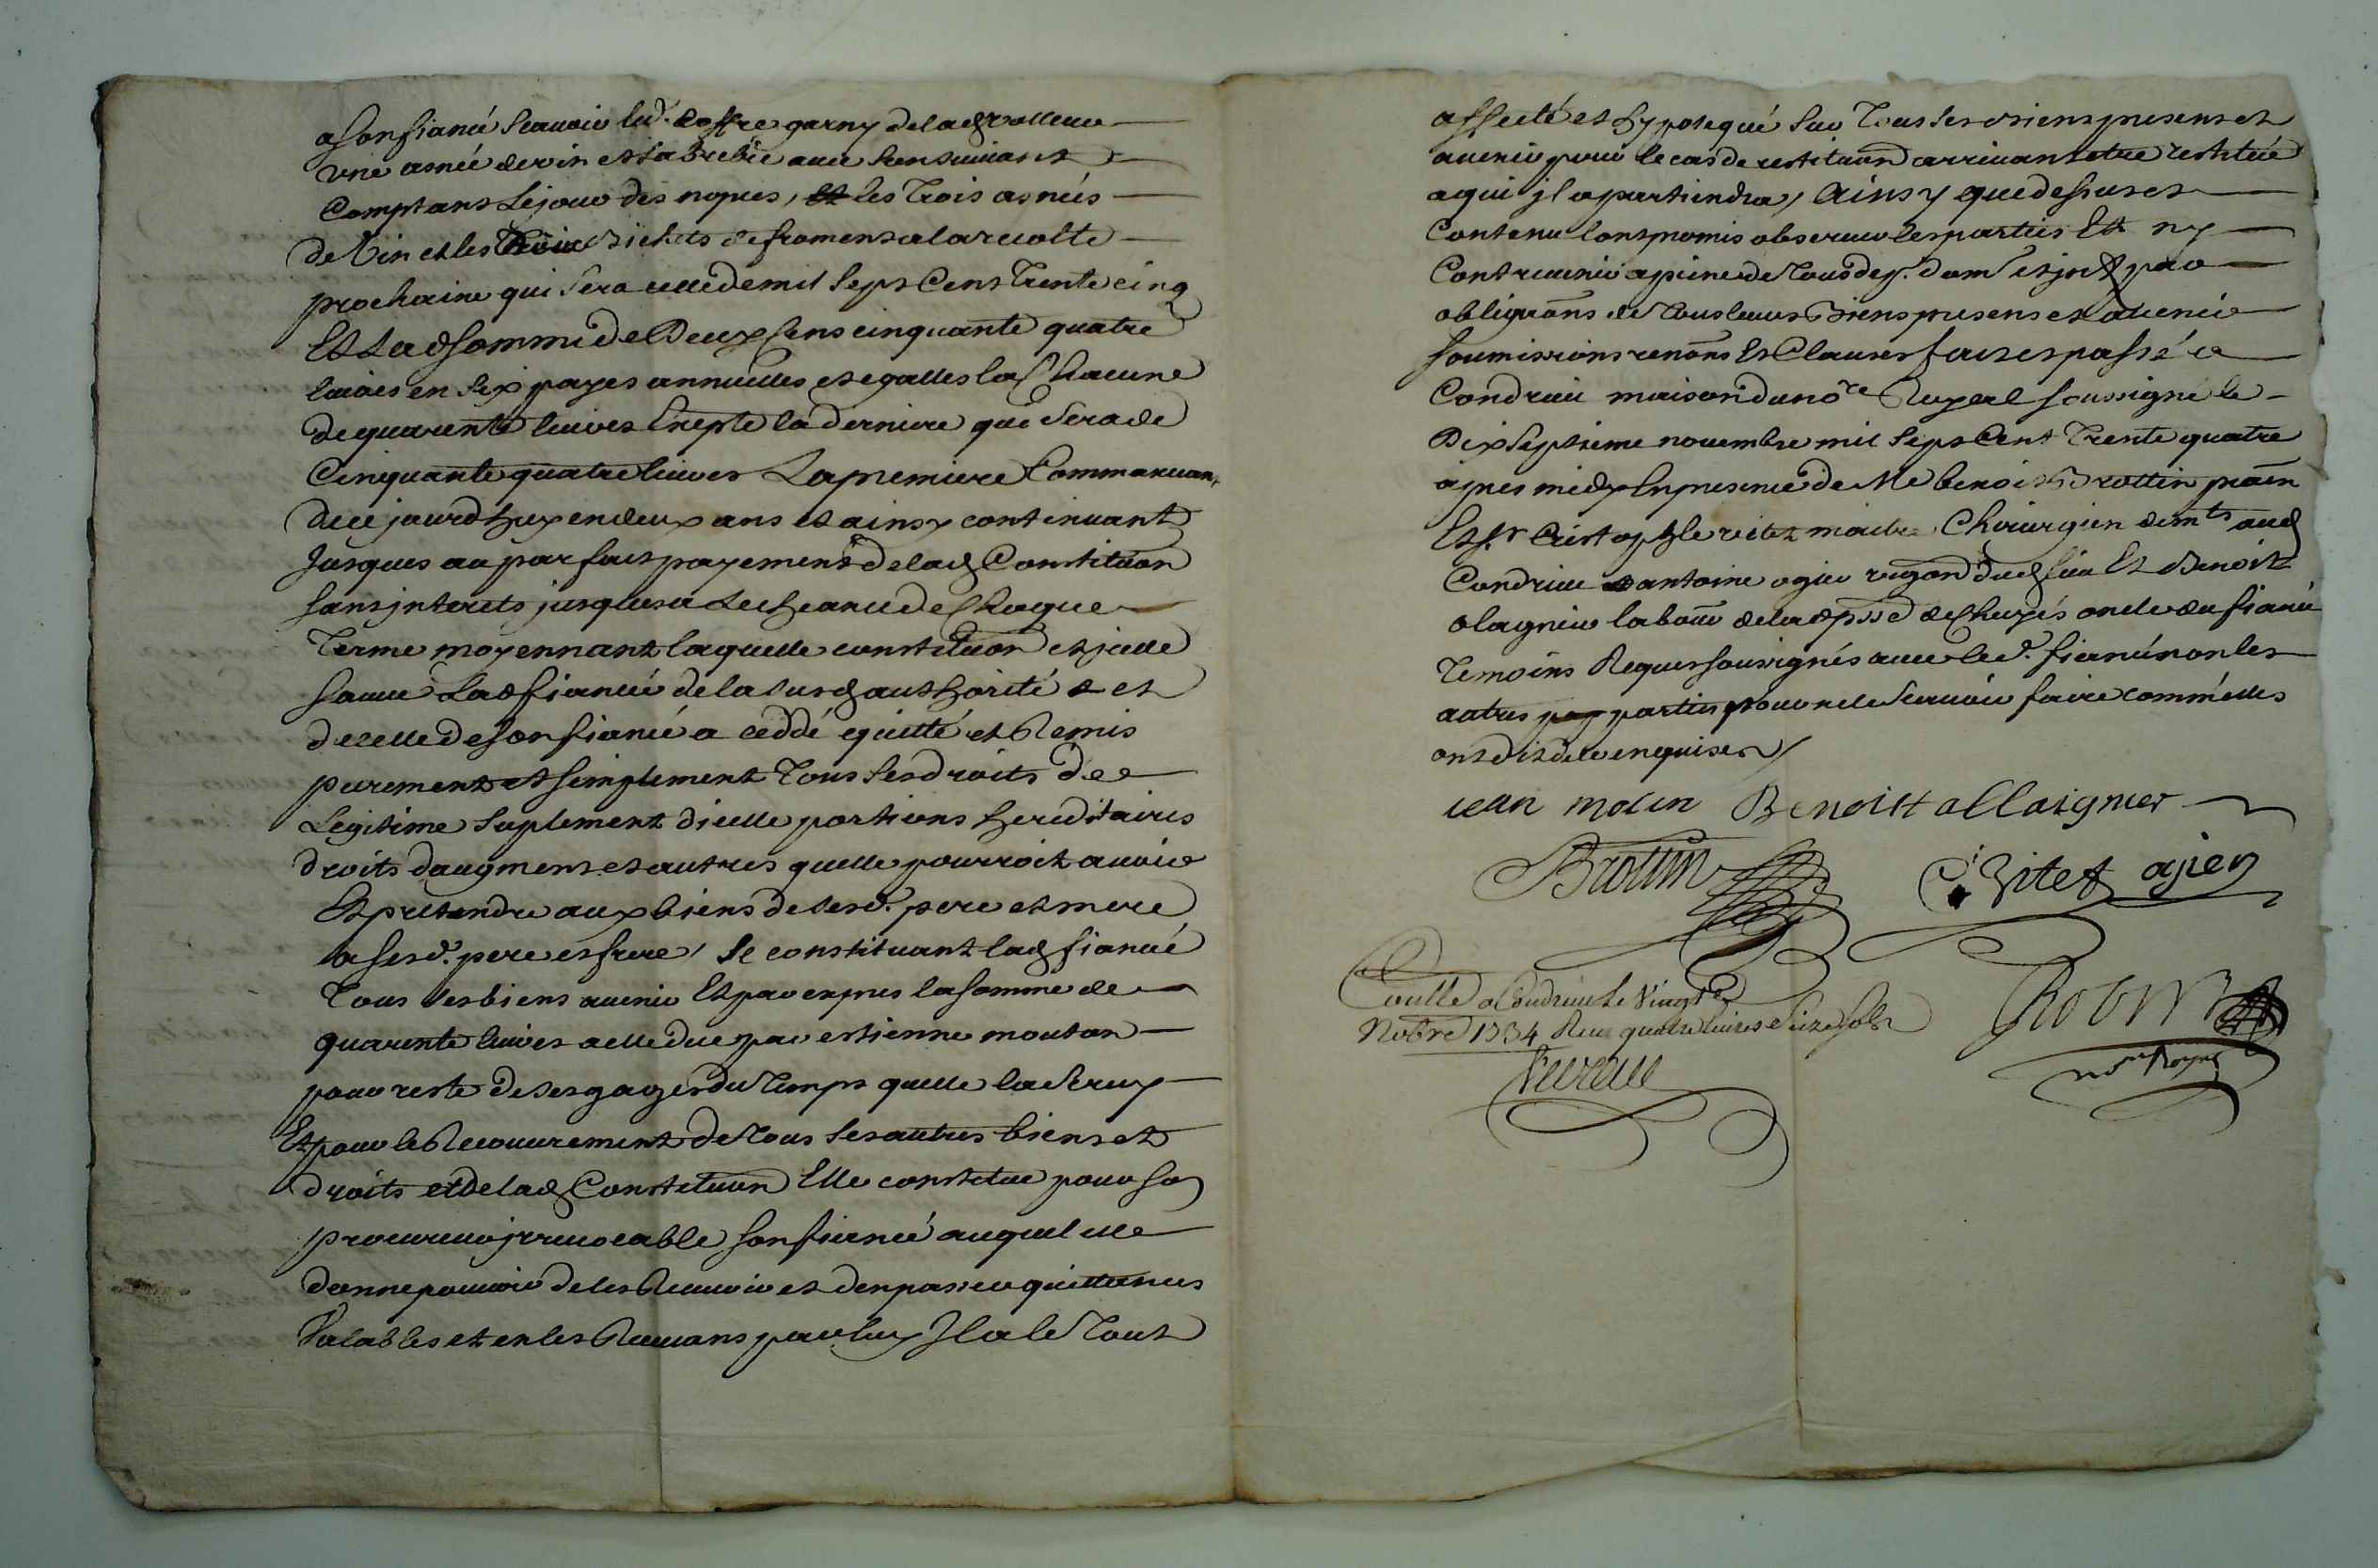 a son fiancé scavoir lad. coffre garny de lad valleur
une asnée de vin et la brebie avec son suivant
comptans le jour des nopces, et les trois asnées
de vin et les trois bichets de froment a la recolte
prochaine qui sera celle de mil sept cens trente cinq
Et lad somme de deux cens cinquante quatre
livres en six payes annuelles et egalles la chacune
de quarente livres Exepté la derniere qui sera de
cinquante quatre livres La premiere commancant
de ce jourdhuy en deux ans et ainsy continuant
jusques au parfait payement de lad Constituon
sans jnterets jusques a lecheance de chaque
terme moyennant laquelle constituon et jcelle
sauve Lad fiancée de la susd authorité et
de celle de son fiancé a ceddé quitté et Remis
purement et simplement tous ses droits de
Legitime suplement dicelle portions hereditaires
droits daugment et autres quelle pourroit avoir
Et pretendre aux biens de sesd. pere et mere
a sesd. pere et frere, se constituant lad fiancée
tous ses biens avenir Et par expres la somme de
quarente livres a elle due par estienne mouton
pour reste de ses gages du temps quelle la servy
Et pour le Recouvrement de tous ses autres biens et
droits et de lad Constituon Elle constitue pour son
procureur jrrevocable son fiancé auquel elle
donne pouvoir de les Recevoir et den passer quittances
Valables et en les Recevans par luy Jl a le tout
affecté et hypotequé sur tous ses biens presens et
avenir pour le cas de restituon arrivant etre restitué
a qui jl apartiendra, Ainsy que dessus et
contenu lont promis observer les parties Et ny
contrevenir a peine de tous dep. dom et jnt par
obligaons de tous leurs Biens presens et avenir
soumissions renons Et clauses fait et passé a
Condrieu maison du nore Royal soussigné le
Dix septieme novembre mil sept cent trente quatre
apres midy En presence de Me benoit Brottin pratn
Et sr Cristophle vitet maitre Chirurgien demts aud
Condrieu antoine ogier vigon dud lieu Et Benoit
olagnier labour de la psse de Chuyés oncle du fiancé
temoins Requis soussignés avec led. fiancé non les
autres parties pour ne le scavoir faire comme elles
ont dit de ce enquises /
iean molin Benoit ollaigner
Brottin C Vitet ajier
Conllé a Condrieu le vingt
Nobre 1734 Reçu quatre livres seize sols
Robin
nore Royal